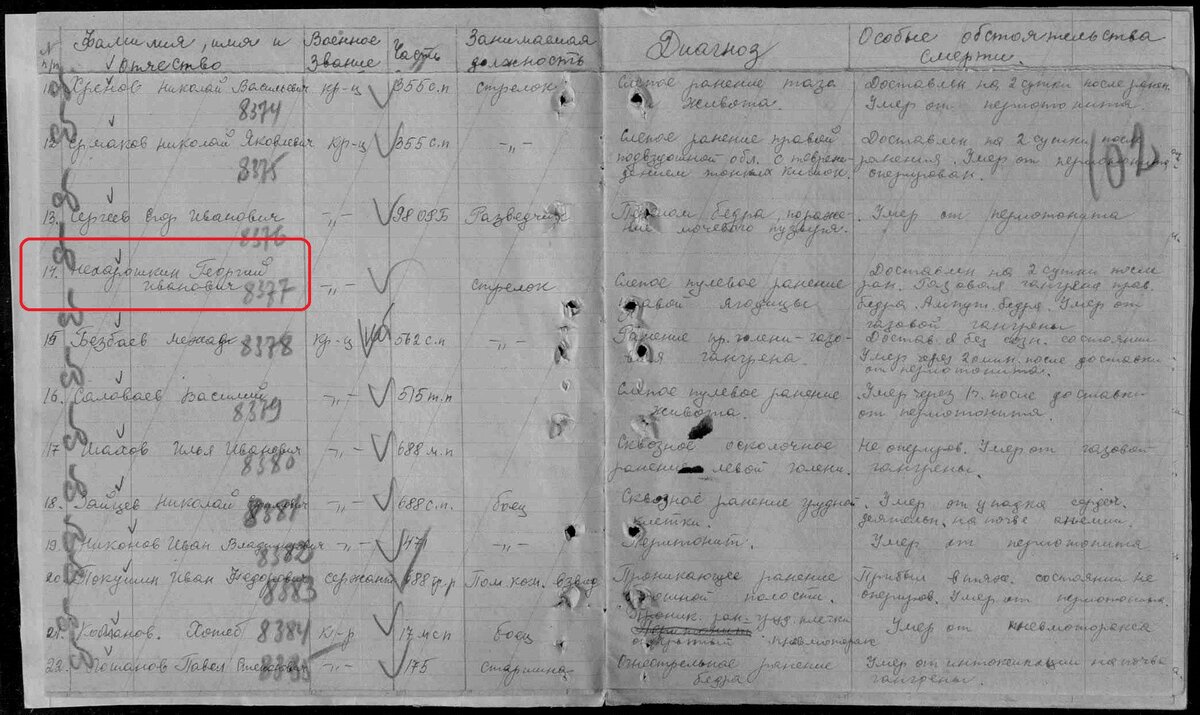 N п/п Фамилия, имя и Отчество Военное Звание Часть Занимаемая должность Диагноз Особые обстоятельства смерти.
Хренов Николай Васильевич кр-ц 355 с.п стрелок Слепое ранение таза живота. Доставлен на 2 сутки после ранен. Умер от перитонита.
8374
12 Ермаков Николай Яковлевич кр-ц 355 с.п -„- Слепое ранение правой подвздошной обл. с дением тонких кишок. Доставлен на 2 сутки посл ранения. Умер от оперирован.
8375
102
13. Сергеев Егор Иванович -„- Разведчик Перелом бедра, мочевого пузыря. Умер от перитонита
8376
14. Георгий Иванович 8377 -„- стрелок Слепое пулевое ранение правой Ягодицы Доставлен на 2 сутки после ран. Газовая гангрена прав. бедра. Ампут. бедра. Умер от газовой гангрены
15 Безбаев 8378 кр-ц 562 с.п -„- Ранение пр. голени - газовая гангрена. Достав. в без созн. состоянии Умер через 20 мин. после доставки от перитонита.
16. Саловаев Василий -„- 515 т.п Слепое пулевое ранение живота. Умер через 1ч. после доставки от перитонита.
8379
17 Шахов Илья Иванович -„- 688 м.п Сквозное осколочное ранение левой голени. Не опериров. Умер от газовой гангрены.
8380
18. Зайцев Николай -„- 688 с.п. боец Сквозное ранение грудной клетки. Умер от упадка сердеч. деятельн. на почве анемии.
8381
19. Никонов Иван Владимирович -„- -„- Перитонит. Умер от перитонита
8382
20 Иван Федорович сержант Пом. ком. взвод Проникающее ранение полости. Прибыл в тяж. состоянии не опериров. Умер от перитонита.
8383
21. Хотеб 8384 кр-р 17 мсп боец Проник. ран. груд. клетки пневмоторакс Умер от пневмоторакса
22. Павел -„- 175 старшина Огнестрельное ранение бедра Умер от интоксикации на почве гангрены.
8385